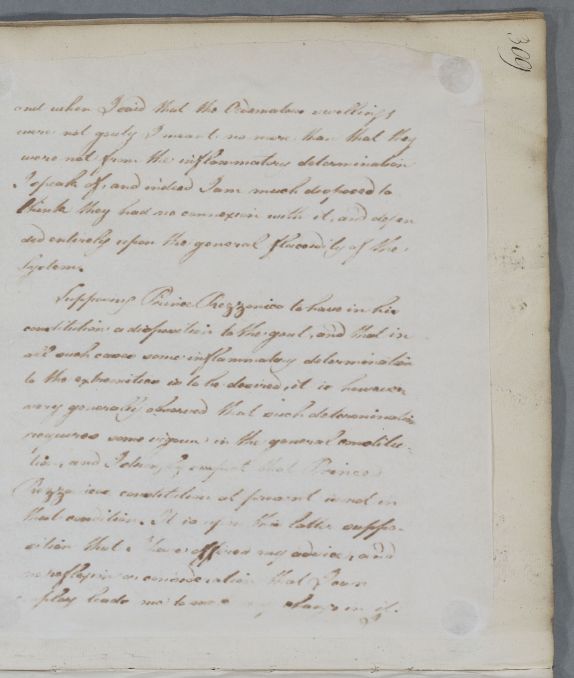 309
and when I said that the Oedematous swellings
were not gouty I meant no more than that they
were not from the inflammatory determination
I speak of, and indeed I am much disposed to
think they had no connexion with it, and depen
ded entirely upon the general flaccidity of the
System.
Supposing Prince Rezzonico to have in his
constitution a disposition to the gout, and that in
all such cases some inflammatory determination
to the extremities is to be desired, it is however
very generally observed that such determination
requires some vigour in the general constitu-
tion, and I strongly suspect that Prince
Rezzonicos constitution at present is not in
that condition. It is upon this latter suppo-
sition that I have offered my advice, and
no reflexion or consideration that I can
employ leads me to make any change in it.